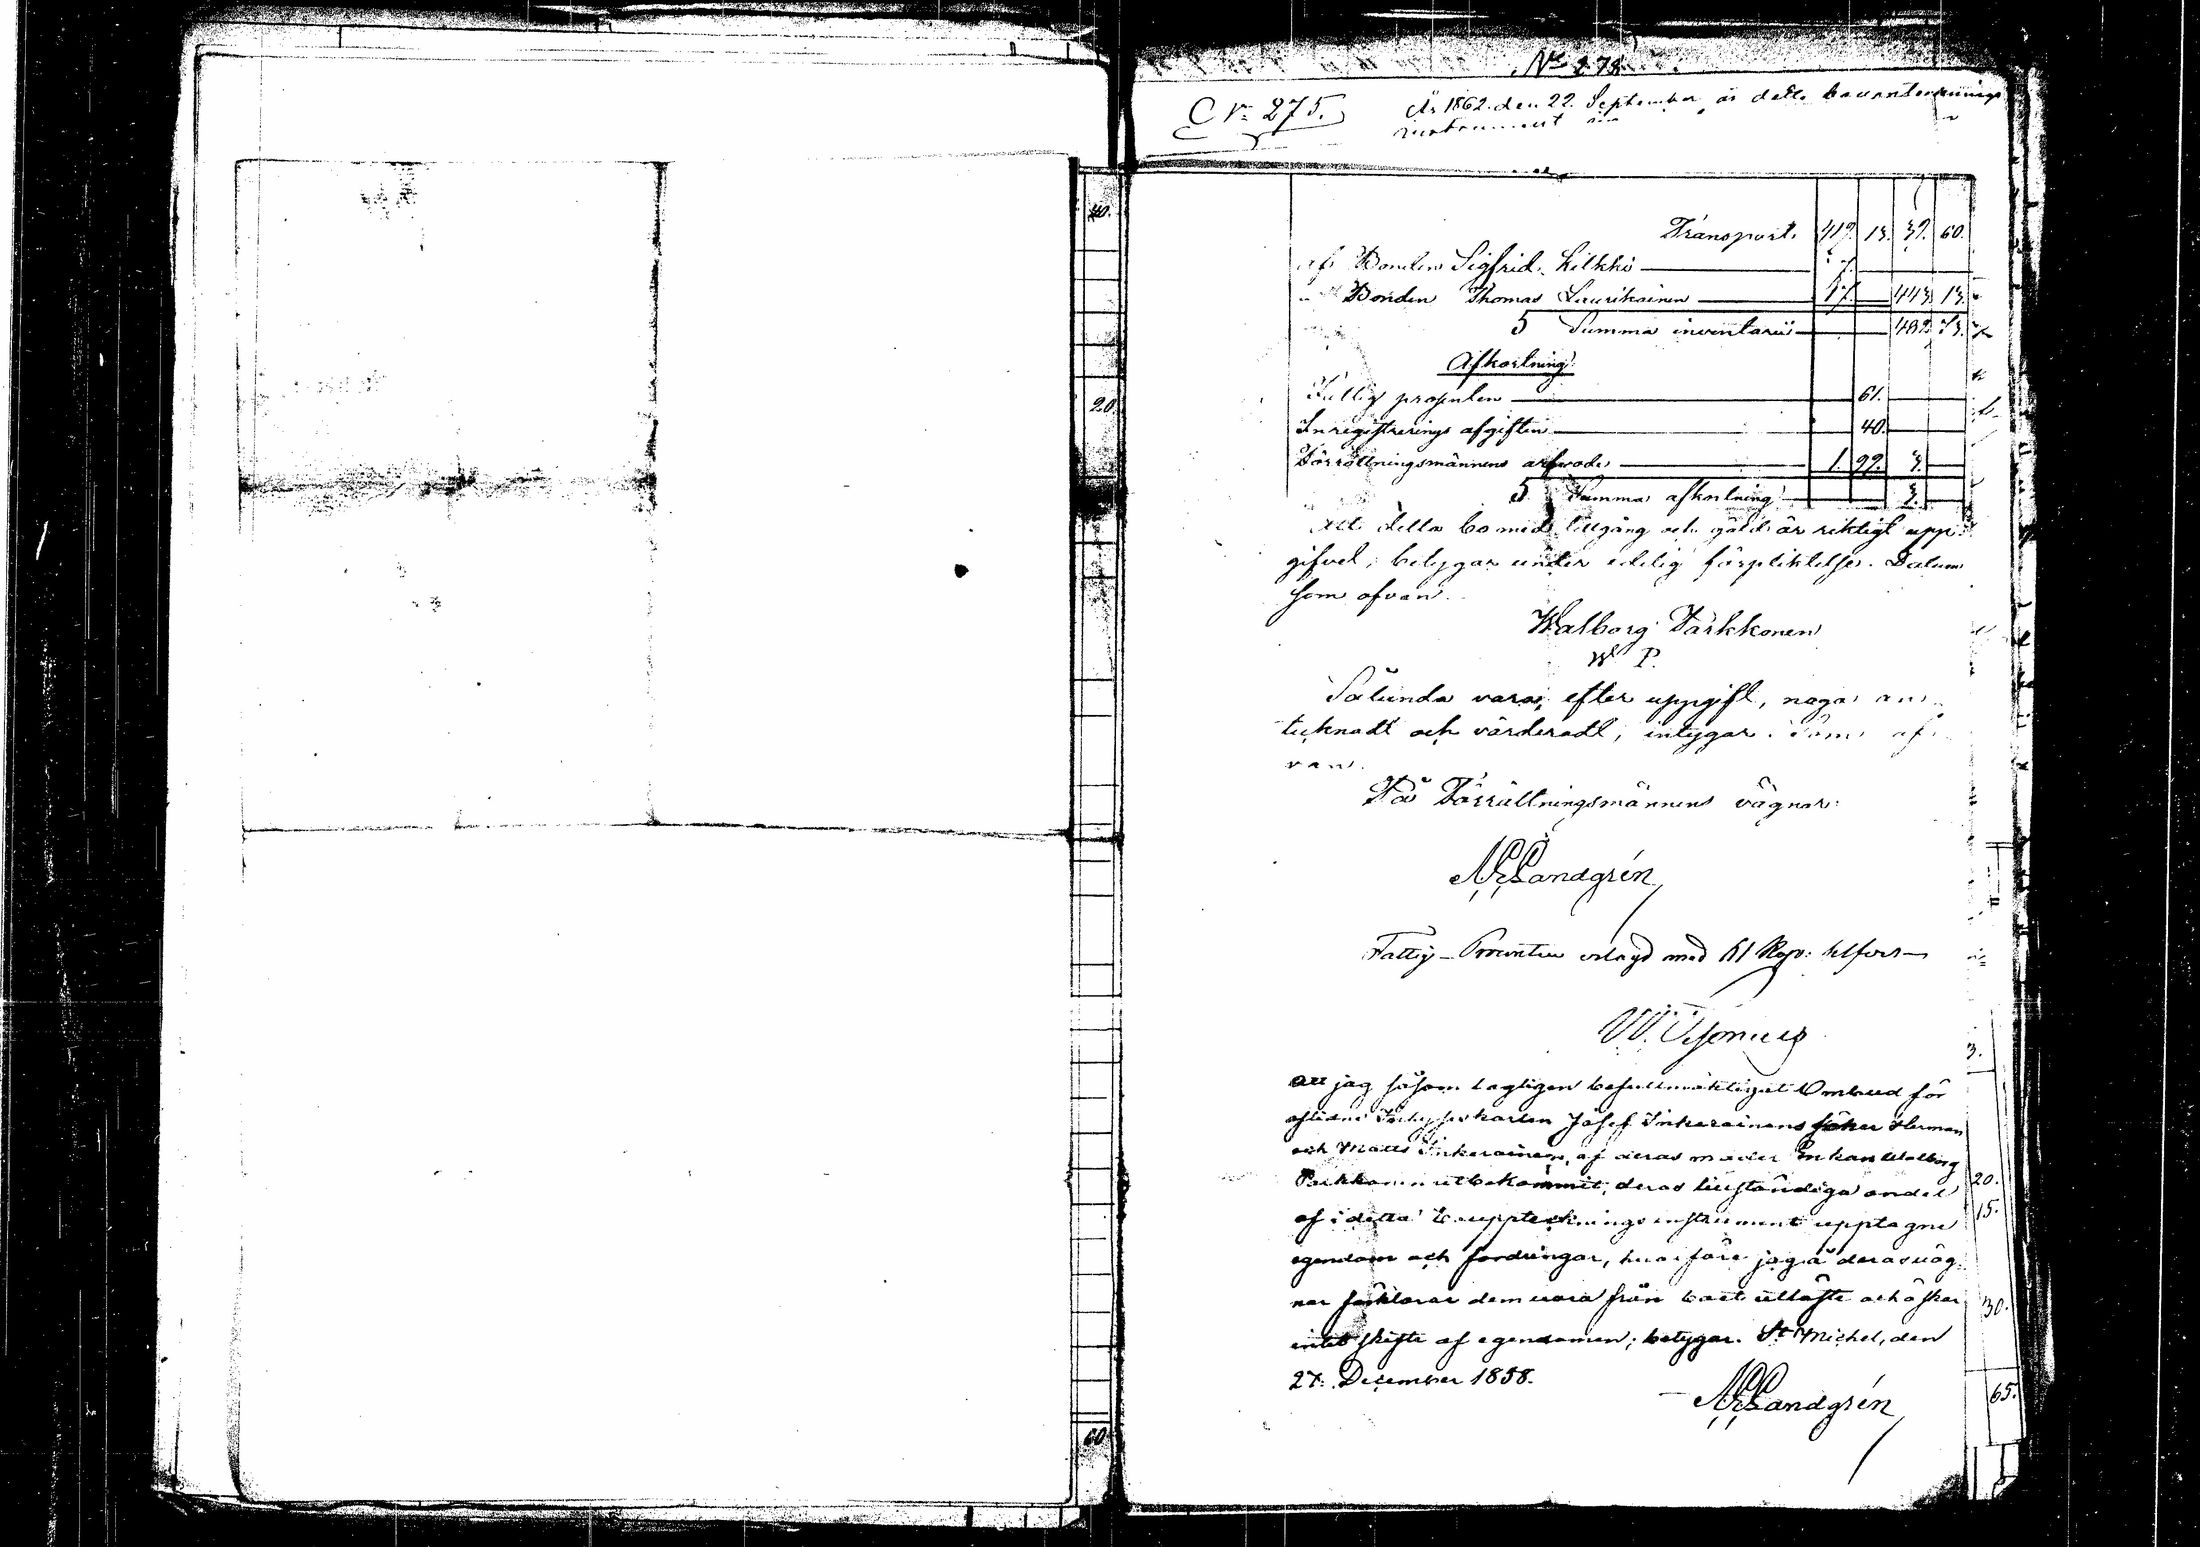 40.
20.
60.
No 278.
C No 275.
År 1862. den 22. September är detta bouppteckningsinstrument
Transport. 419. 13. 39. 60.
af Bonden Sigfrid Kilkki 7.
Bonden Thomas Laurikainen 17. 443. 13.
S Summa inventarii 482. 73.
Afkortning.
Fattig procenten 61.
Inregistrerings afgiften 40.
Förrättningsmännens arfvode 1. 99. 3.
S Summa afkortning 3.
Att detta bo med tillgång och gäld är riktigt upp-
gifvet, betygar under edelig förpliktelse. Datum
som ofvan.
Walborg Parkkonen
W P.
Sålunda vara, efter uppgift, noga an-
tecknadt och värderadt, intygar. Som of-
van.
På Förrättningsmännens vägnar:
Landgrén
Fattig-Procenten erlagd med 61 Kop: silfver
Att jag såsom lagligen befullmäktigat Ombud för
aflidne Josef Inkerainens söner Herman
och Matts Inkerainen, af deras moder Enkan Walborg
Parkkonen utbekommit, deras tillständiga andel
af i detta bouppteckningsinstrument upptagne
egendom och fordringar, hvarföre jag å deras väg-
nar förklarar dem vara från boet utlöste och åskar
intet skifte af egendomen; betygar. St Michel, den
27. December 1858.
Landgrén
3.
20.
15.
30.
65.